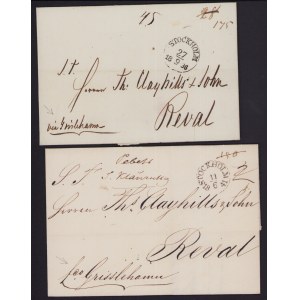 45
175
STOCKHOLM
27
9
S. T.
Herrn Th. Clayhills & Sohn
Reval
via Grisslehamn
S. T.
STOCKHOLM
11
6
Herren Ths. Clayhills & Sohn
Reval
fco Grisslehamn